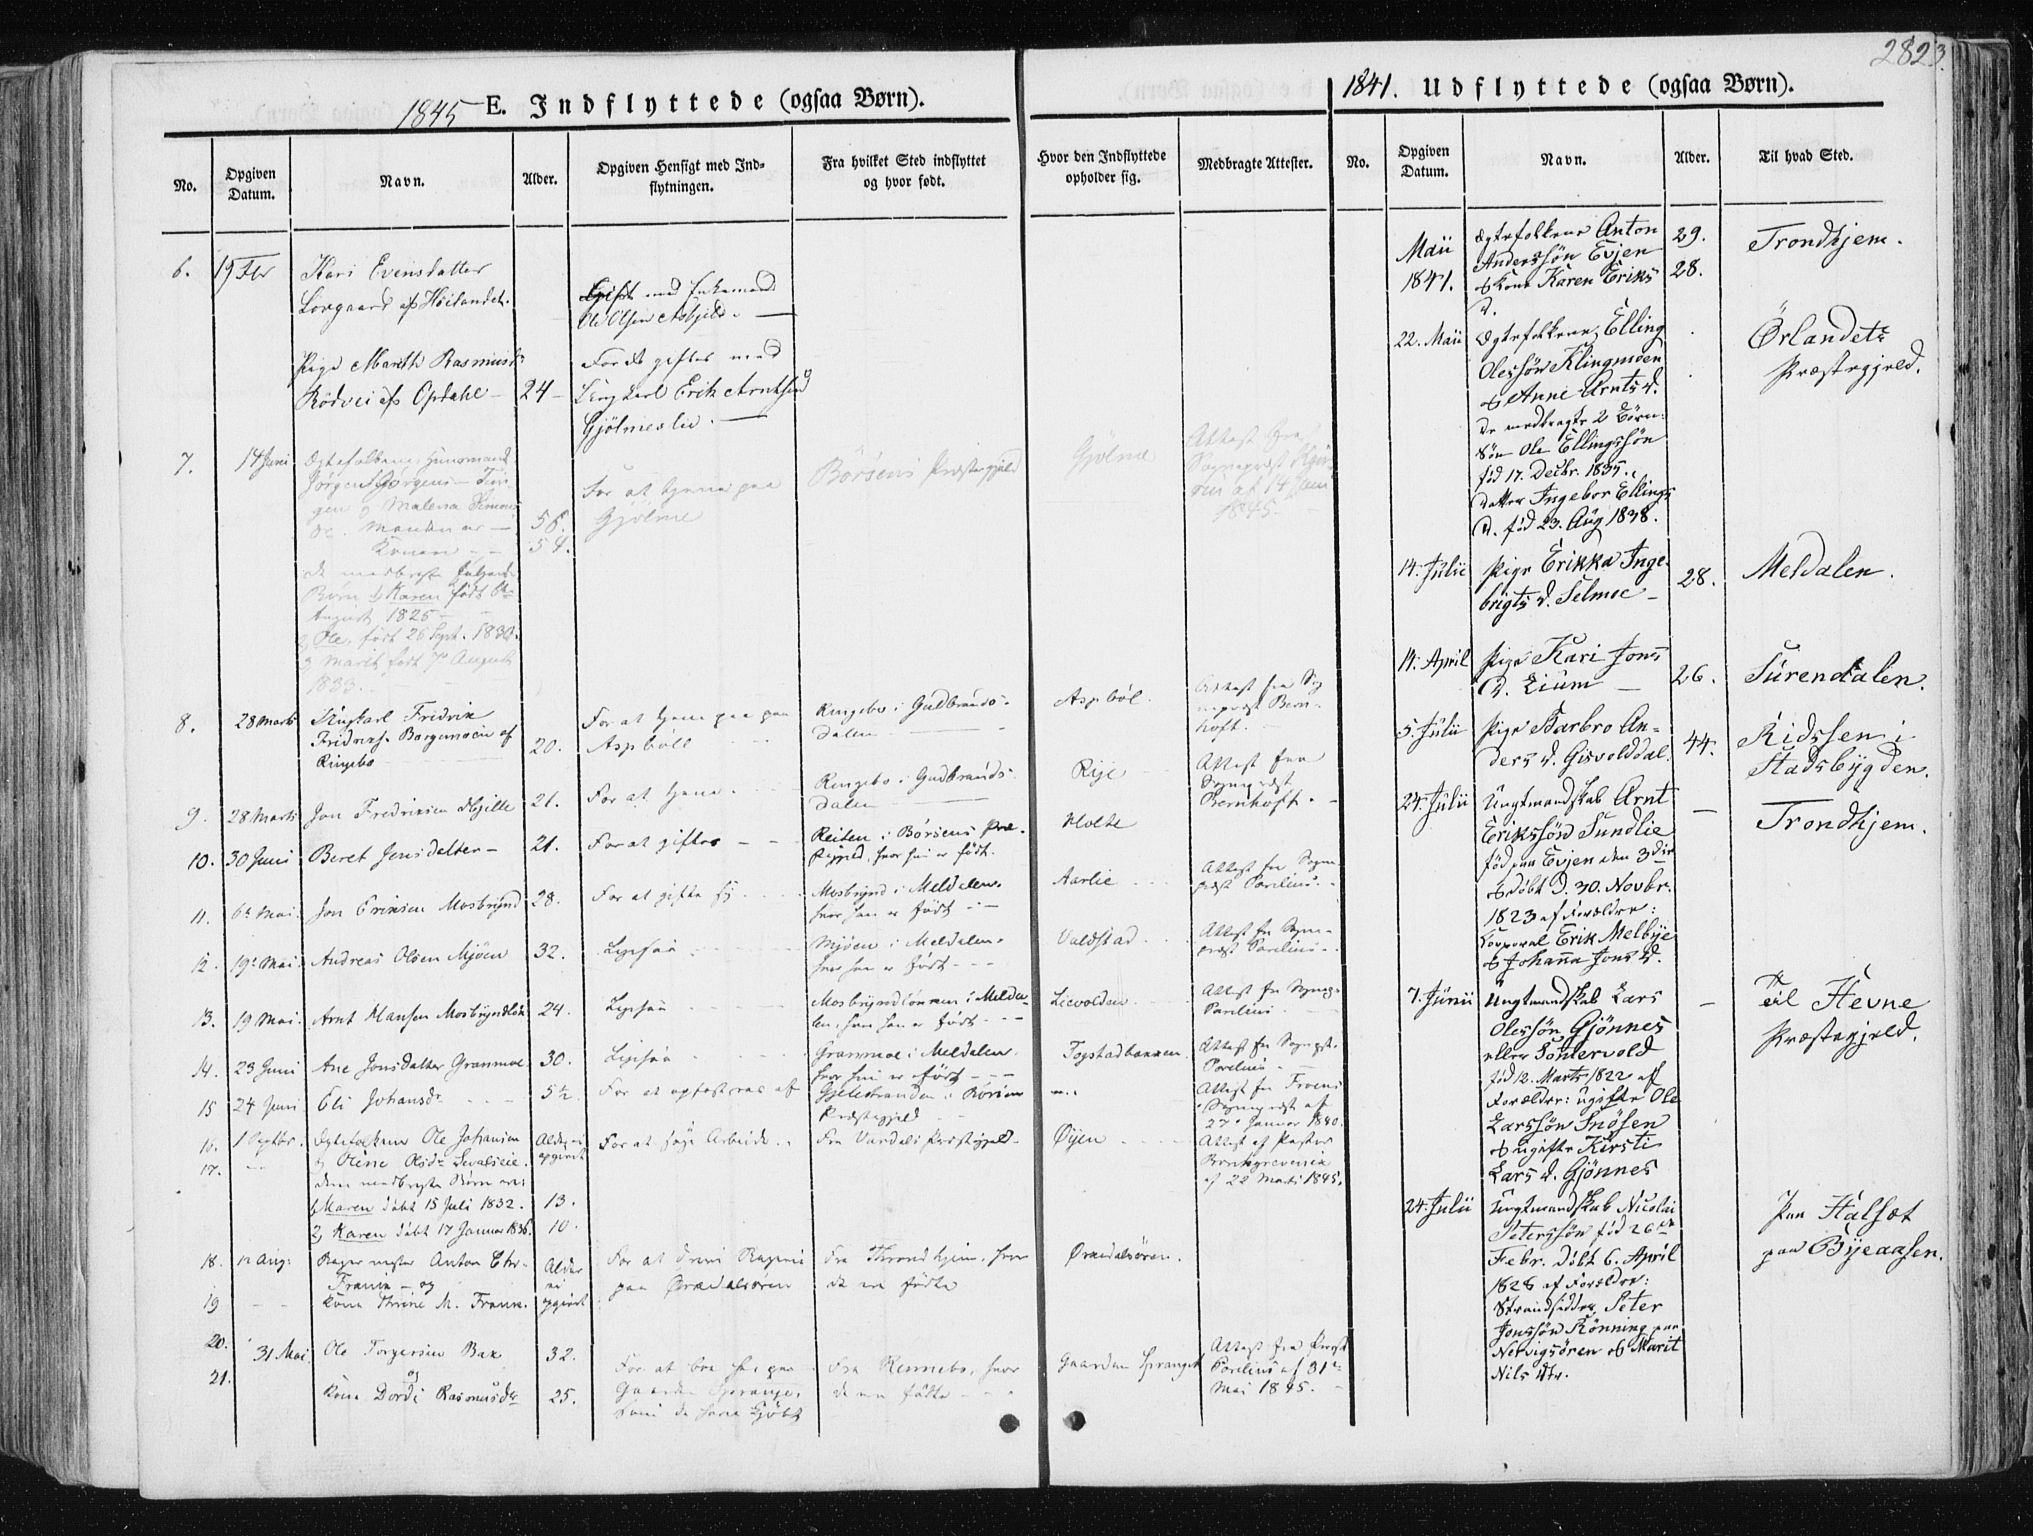 2823.
1845 E. Indflyttede (ogsaa Børn).
No.
Opgiven Datum.
Navn.
Alder.
Opgiven Hensigt med Ind-
flytningen.
Fra hvilket Sted indflyttet
og hvor født.
Hvor den Indflyttede
opholder sig.
Medbragte Attester.
6. 19 Febr Kari Evensdatter
Lovgaard af Høilandet. Gift med Enkemand
Ole Olsen
Pige Marith Rasmusdr For at giftes med
Rödvei af Opdahl 24 Ungkarl Erik Arntsen
Gjölmeslie.
7. 14 Juni Ægtefolkene Huusmand
Jörgen Jörgens
gen & Malena Simons
dr. Manden er 56.
Konen 54.
For at tjene paa
Gjölme
Börsens Præstegjæld
Gjölme
Attest fra
Sognepræst
af 14 Juni
1845.
de medbragte følgende
Børn 1) Karen født
August 1825
2 Ole, født 26 Sept. 1830.
3 Marit født 7de August
1833.
8. 28 Marts Ungkarl Fridrik
Fridriks. Borgemoen af
Ringebo 20. For at tjene paa
Aspböll Ringebo i Gudbrands-
dalen Aspböl. Attest fra Sog-
nepræst Bern-
hoft.
9. 28 Marts Jon Fredriksen Hjille 21. For at tjene Ringebo i Gudbrands-
dalen Rije Attest fra
Sognepræst
Bernhoft.
10. 30 Juni Beret Jensdatter 21. For at giftes Reiten i Börsens Præ-
stegjeld, hvor hun er født. Holte
11. 6te Mai. Jon Eriksen Mosbrynd 28. For at gifte sig Mosbrynd i Meldalen.
hvor han er født Aarlie Attest fra Sogne-
præst Parelius.
12. 19. Mai. Andreas Olsen Mjöen 32. Ligesaa Mjöen i Meldalen.
hvor han er født Valdstad Attest fra Sogne-
præst Parelius.
13. 19 Mai. Arnt Hansen Mosbryndlök 24. Ligesaa i Melda-
len, hvor han er født Lievolden Attest fra Sognep.
Parelius.
14. 23 Juni Ane Jonsdatter Granmoe 30. Ligesaa Granmoe i Meldalen.
hvor hun er født Attest fra Sognepst.
Parelius
15 24 Juni Eli Johansdr 5½ For at opfostres af Gjelestranden i Börsens
Præstegjeld Attest fra
Sognepræst af
27. Januar 1840.
16. 1 Septbr. Ægtefolkene Ole Johansen Alder ei
17. & Oline Olsdr Levalseie. opgivet For at söge Arbeide Fra Værdals Præstegjeld Øyen Attest af Pastor
af 22 Marts 1845.
dem medbragte Børn ere:
1) Maren döbt 15 Juli 1832. 13.
2) Karen döbt 17 Januar 1836. 10.
18. 12 Aug: Anton Chr.
Franm og Alder
ei
19 Kone Thrine M. Franm. opgivet
For at drive
paa Ørkedalsören Fra Throndhjem, hvor
de ere fødte Ørkedalsören.
20. 31 Mai Ole Torgersen Bak 32.
og
21. Kone Dordi Rasmusdr 25.
For at boe her paa
Gaarden
som de have kjöbt
Fra Rennebo, hvor
de ere fødte
Gaarden Attest fra Præst
Parelius af 31te
Mai 1845.
1841. Udflyttede (ogsaa Børn).
No.
Opgiven
Datum.
Navn.
Alder.
Til hvad Sted.
Maii
1841. Ægtefolkene Anton
Anderssön Evjen
& Kone Karen Eriks
D. 29.
28. Trondhjem.
22. Maii Ægtefolkene Elling
Olessön Klingmoen
& Anne Arnts D.
de medbragte 2 Börn:
Sön Ole Ellingssön
föd 17. Decbr. 1835.
Datter Ingebor Ellings
D. föd 23. Aug 1838. Örlandets
Præstegjeld.
14. Julii Pige Erikka Inge-
brigts D. Selmoe 28. Meldalen.
14. April Pige Kari Jons
D. Lium 26. Surendalen.
5. Julii Pige Barbro An-
ders D. Gisvolddal. 44. Ridssen i
Stadsbygden.
24. Julii Ungtmandskab Arnt
Erikssön Sundlie
föd paa Evjen den 3die
& döbt d. 30. Novbr.
1823 af Forældre:
Korporal Erik Melbye
& Johanna Jons D. Trondhjem.
7. Junii Ungtmandskab Lars
Olessön Gjönnes
eller Söntervold
föd 12. Marts 1822 af
Forældre: ugifte Ole
Larssön Snösen
& ugifte Kirsti
Lars D. Gjönnes Til Hevne
Præstegjeld.
24. Julii Ungtmandskab Nicolai
Peterssön föd 26de
Febr. döbt 6. April
1828 af Forældre:
Strandsidder Peter
Jonssön Rönning paa
Nervigsören & Marit
Nils Dtr. Paa Halset
paa Byeaasen.